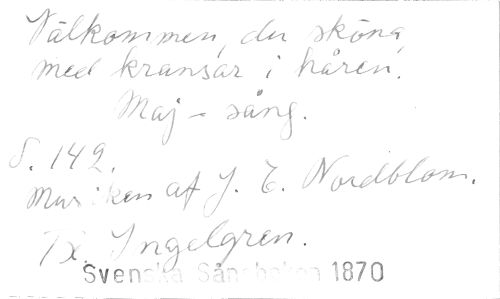 Välkommen, du sköna,
med kransar i håren.
Maj-sång.
S. 142.
Musiken af J. E. Nordblom.
Tx. Ingelgren.
Svenska Sångboken 1870